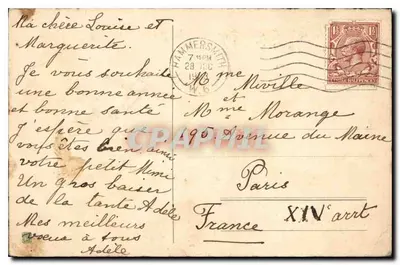 Ma chère Louise et
Marguerite.
Je vous souhaite
une bonne année
et bonne santé
J'espère que
vous êtes bien, ainsi
votre petit Mimi
Un gros baiser
de la tante Adèle
Mes meilleurs
vœux à tous
Adèle
HAMMERSMITH
7 PM
28 DEC
W.6
Mme Miville
et
Mme Morange
196 Avenue du Maine
Paris
XIVe arrt
France
CPArama.com